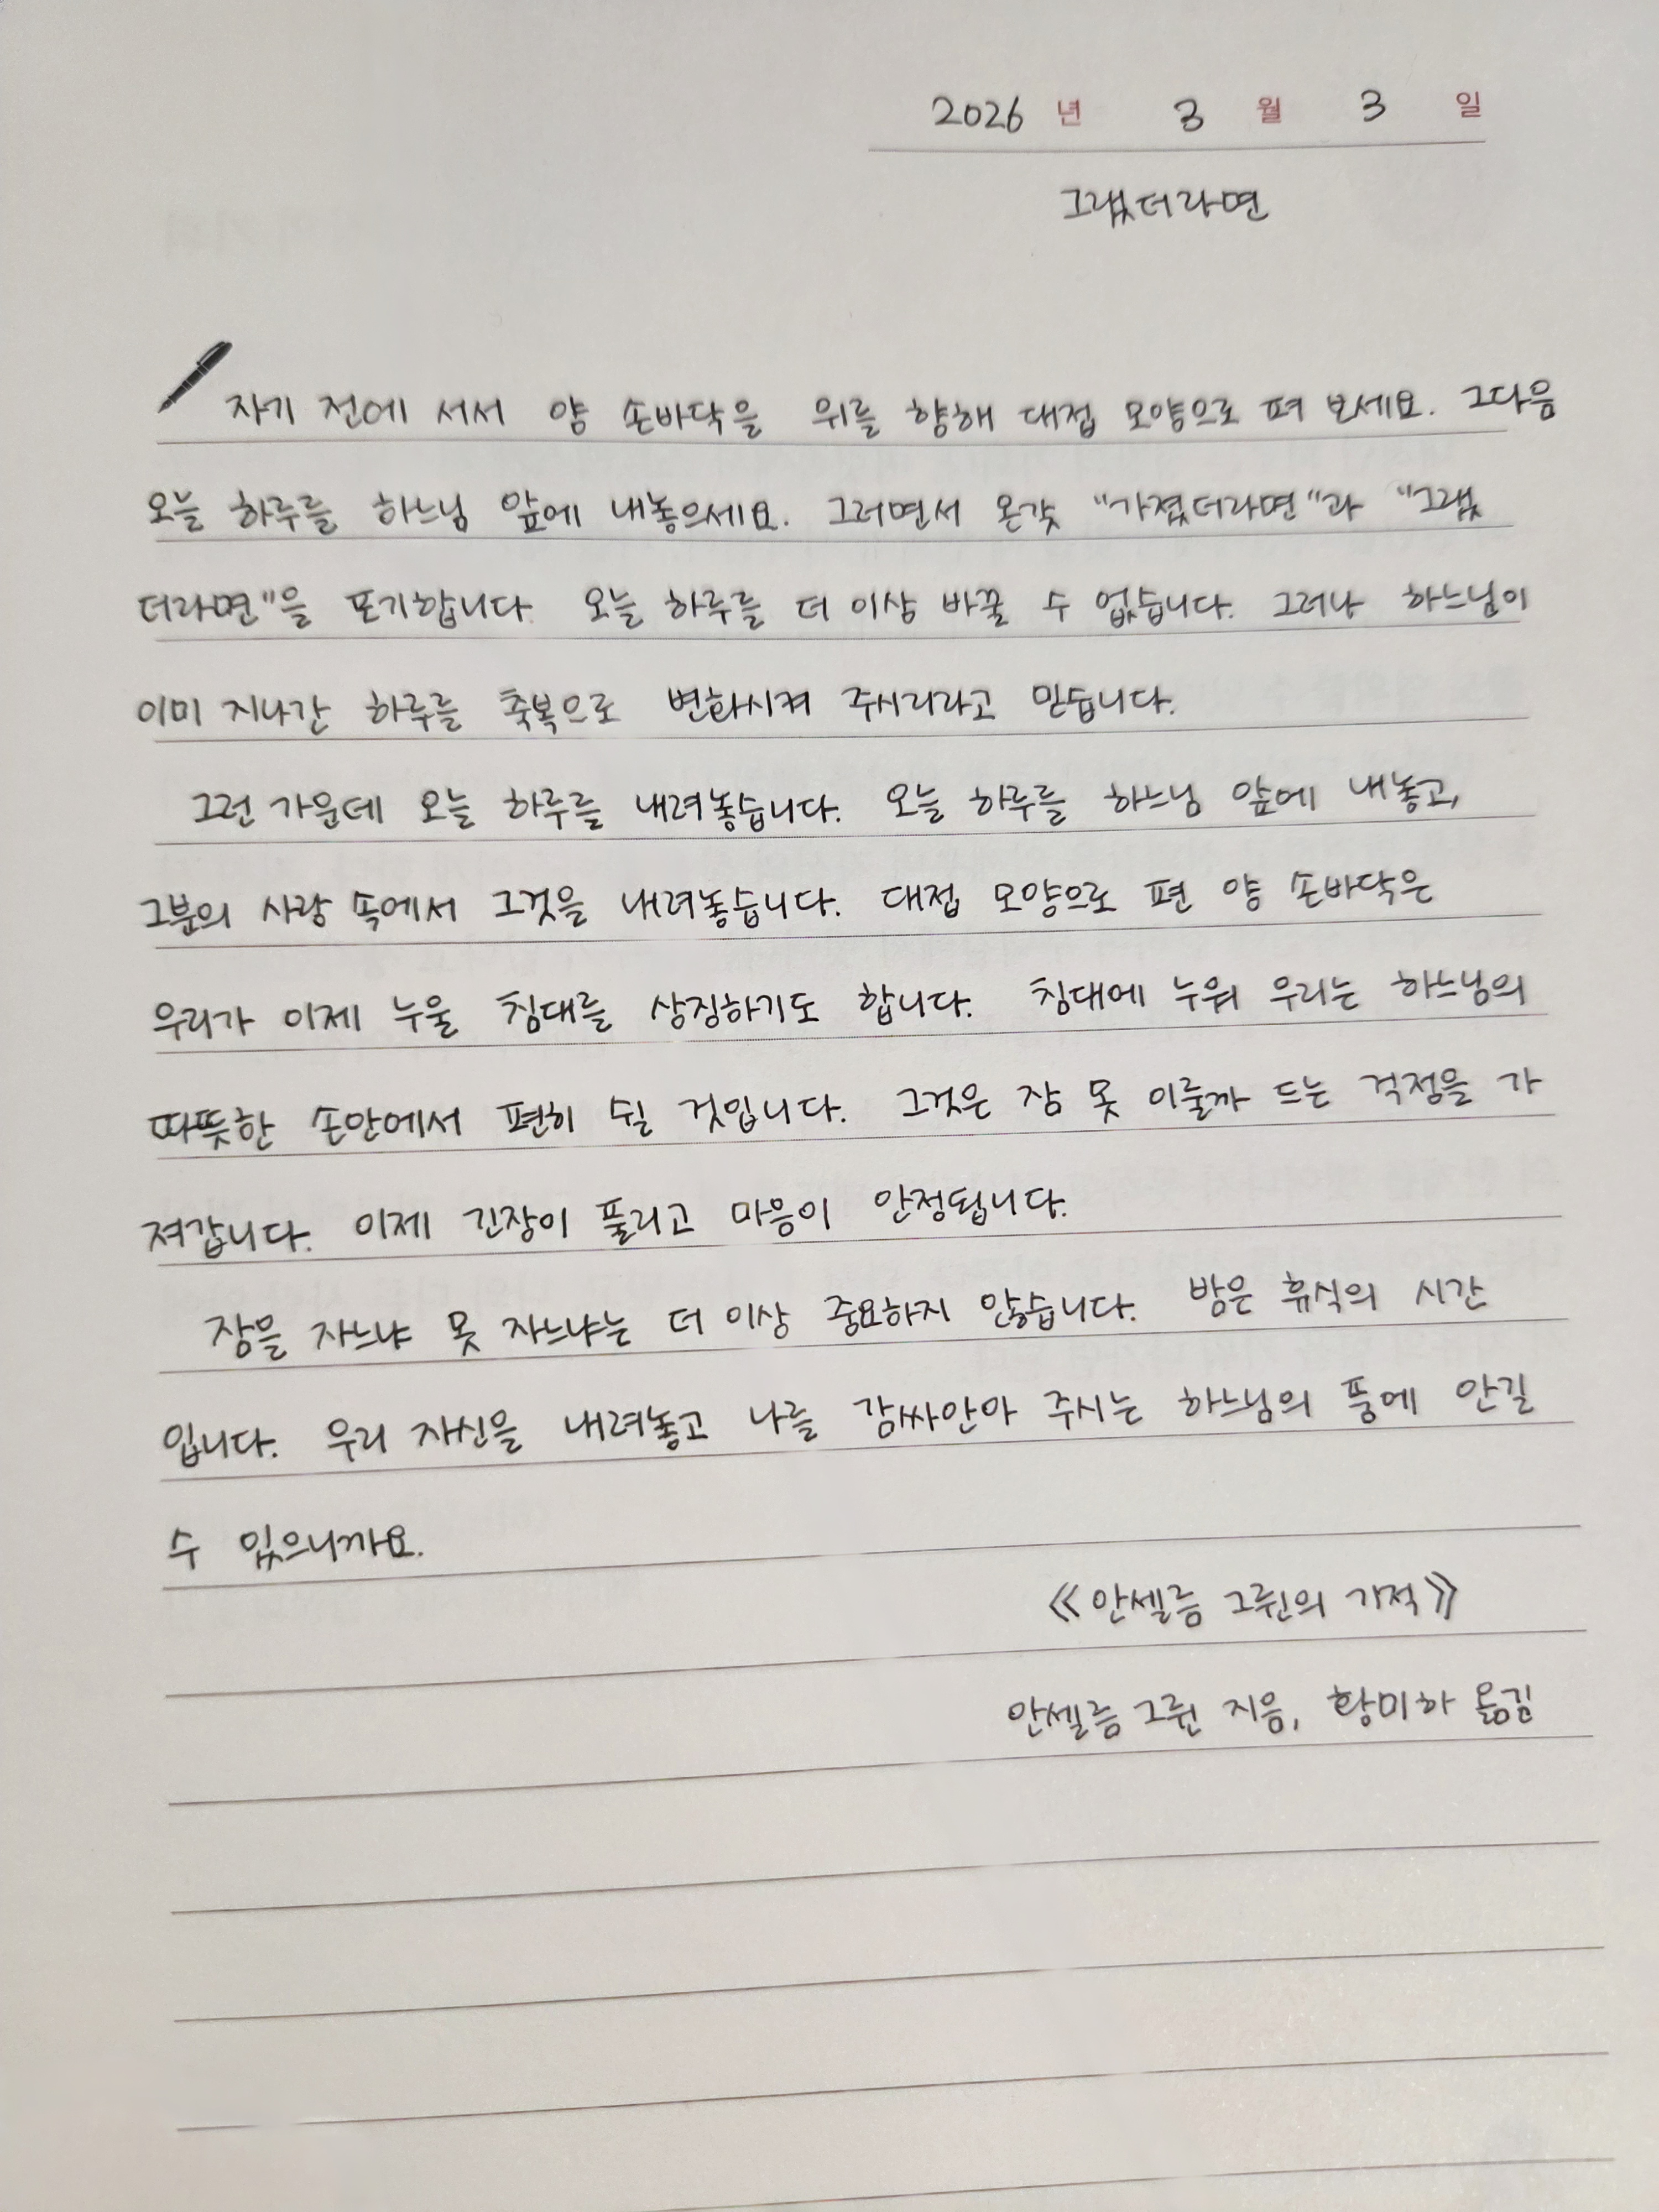 2026 년 3 월 3 일
그랬더라면
자기 전에 서서 양 손바닥을 위를 향해 대접 모양으로 펴 보세요. 그다음
오늘 하루를 하느님 앞에 내놓으세요. 그러면서 온갖 "가졌더라면"과 "그랬
더라면"을 포기합니다. 오늘 하루를 더 이상 바꿀 수 없습니다. 그러나 하느님이
이미 지나간 하루를 축복으로 변화시켜 주시리라고 믿습니다.
그런 가운데 오늘 하루를 내려놓습니다. 오늘 하루를 하느님 앞에 내놓고,
그분의 사랑 속에서 그것을 내려놓습니다. 대접 모양으로 편 양 손바닥은
우리가 이제 누울 침대를 상징하기도 합니다. 침대에 누워 우리는 하느님의
따뜻한 손안에서 편히 쉴 것입니다. 그것은 잠 못 이룰까 드는 걱정을 가
져갑니다. 이제 긴장이 풀리고 마음이 안정됩니다.
잠을 자느냐 못 자느냐는 더 이상 중요하지 않습니다. 밤은 휴식의 시간
입니다. 우리 자신을 내려놓고 나를 감싸안아 주시는 하느님의 품에 안길
수 있으니까요.
《안셀름 그륀의 기적》
안셀름 그륀 지음, 황미하 옮김